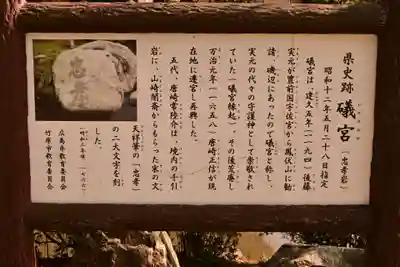 県史跡 礒宮 (忠孝岩)
昭和十二年五月二十八日指定
礒宮は、建久五年(一一九四)後藤
実元が豊前国宇佐宮から鳳伏山に勧
請、磯辺にあったので礒宮と称し、
実元の代々の守護神として崇敬され
ていた(礒宮縁起)。その後荒廃し
万治元年(一六五八)唐崎正信が現
在地に遷宮し再興した。
五代、唐崎常陸介は、境内の千引
岩に、山崎闇斎からもらった家の文
天祥筆の「忠孝」
の二大文字を刻
した。
広島県教育委員会
竹原市教育委員会
忠孝